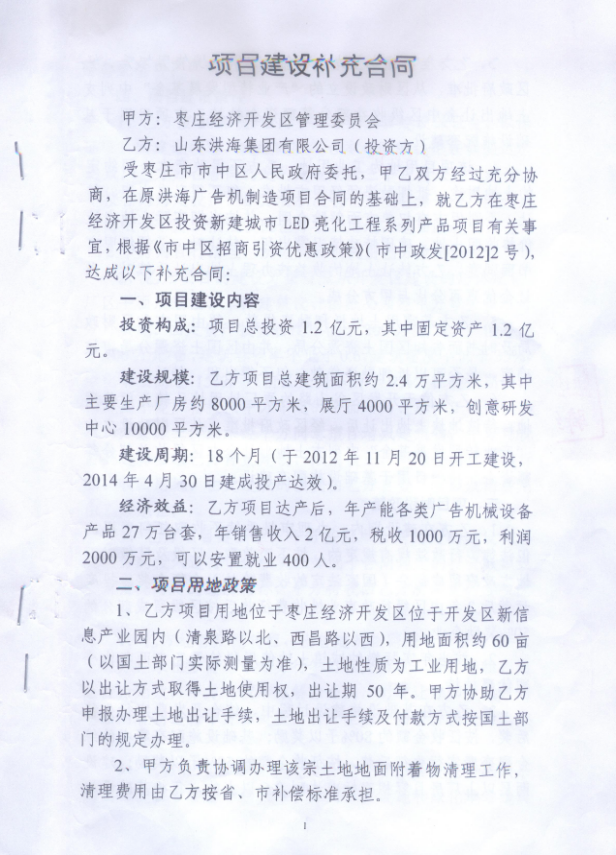 项目建设补充合同
甲方：枣庄经济开发区管理委员会
乙方：山东洪海集团有限公司（投资方）
受枣庄市市中区人民政府委托，甲乙双方经过充分协
商，在原洪海广告机制造项目合同的基础上，就乙方在枣庄
经济开发区投资新建城市LED亮化工程系列产品项目有关事
宜，根据《市中区招商引资优惠政策》（市中政发[2012]2号），
达成以下补充合同：
一、项目建设内容
投资构成：项目总投资1.2亿元，其中固定资产1.2亿
元。
建设规模：乙方项目总建筑面积约2.4万平方米，其中
主要生产厂房约8000平方米，展厅4000平方米，创意研发
中心10000平方米。
建设周期：18个月（于2012年11月20日开工建设，
2014年4月30日建成投产达效）。
经济效益：乙方项目达产后，年产能各类广告机械设备
产品27万台套，年销售收入2亿元，税收1000万元，利润
2000万元，可以安置就业400人。
二、项目用地政策
1、乙方项目用地位于枣庄经济开发区位于开发区新信
息产业园内（清泉路以北、西昌路以西），用地面积约60亩
（以国土部门实际测量为准），土地性质为工业用地，乙方
以出让方式取得土地使用权，出让期50年。甲方协助乙方
申报办理土地出让手续，土地出让手续及付款方式按国土部
门的规定办理。
2、甲方负责协调办理该宗土地地面附着物清理工作，
清理费用由乙方按省、市补偿标准承担。
1